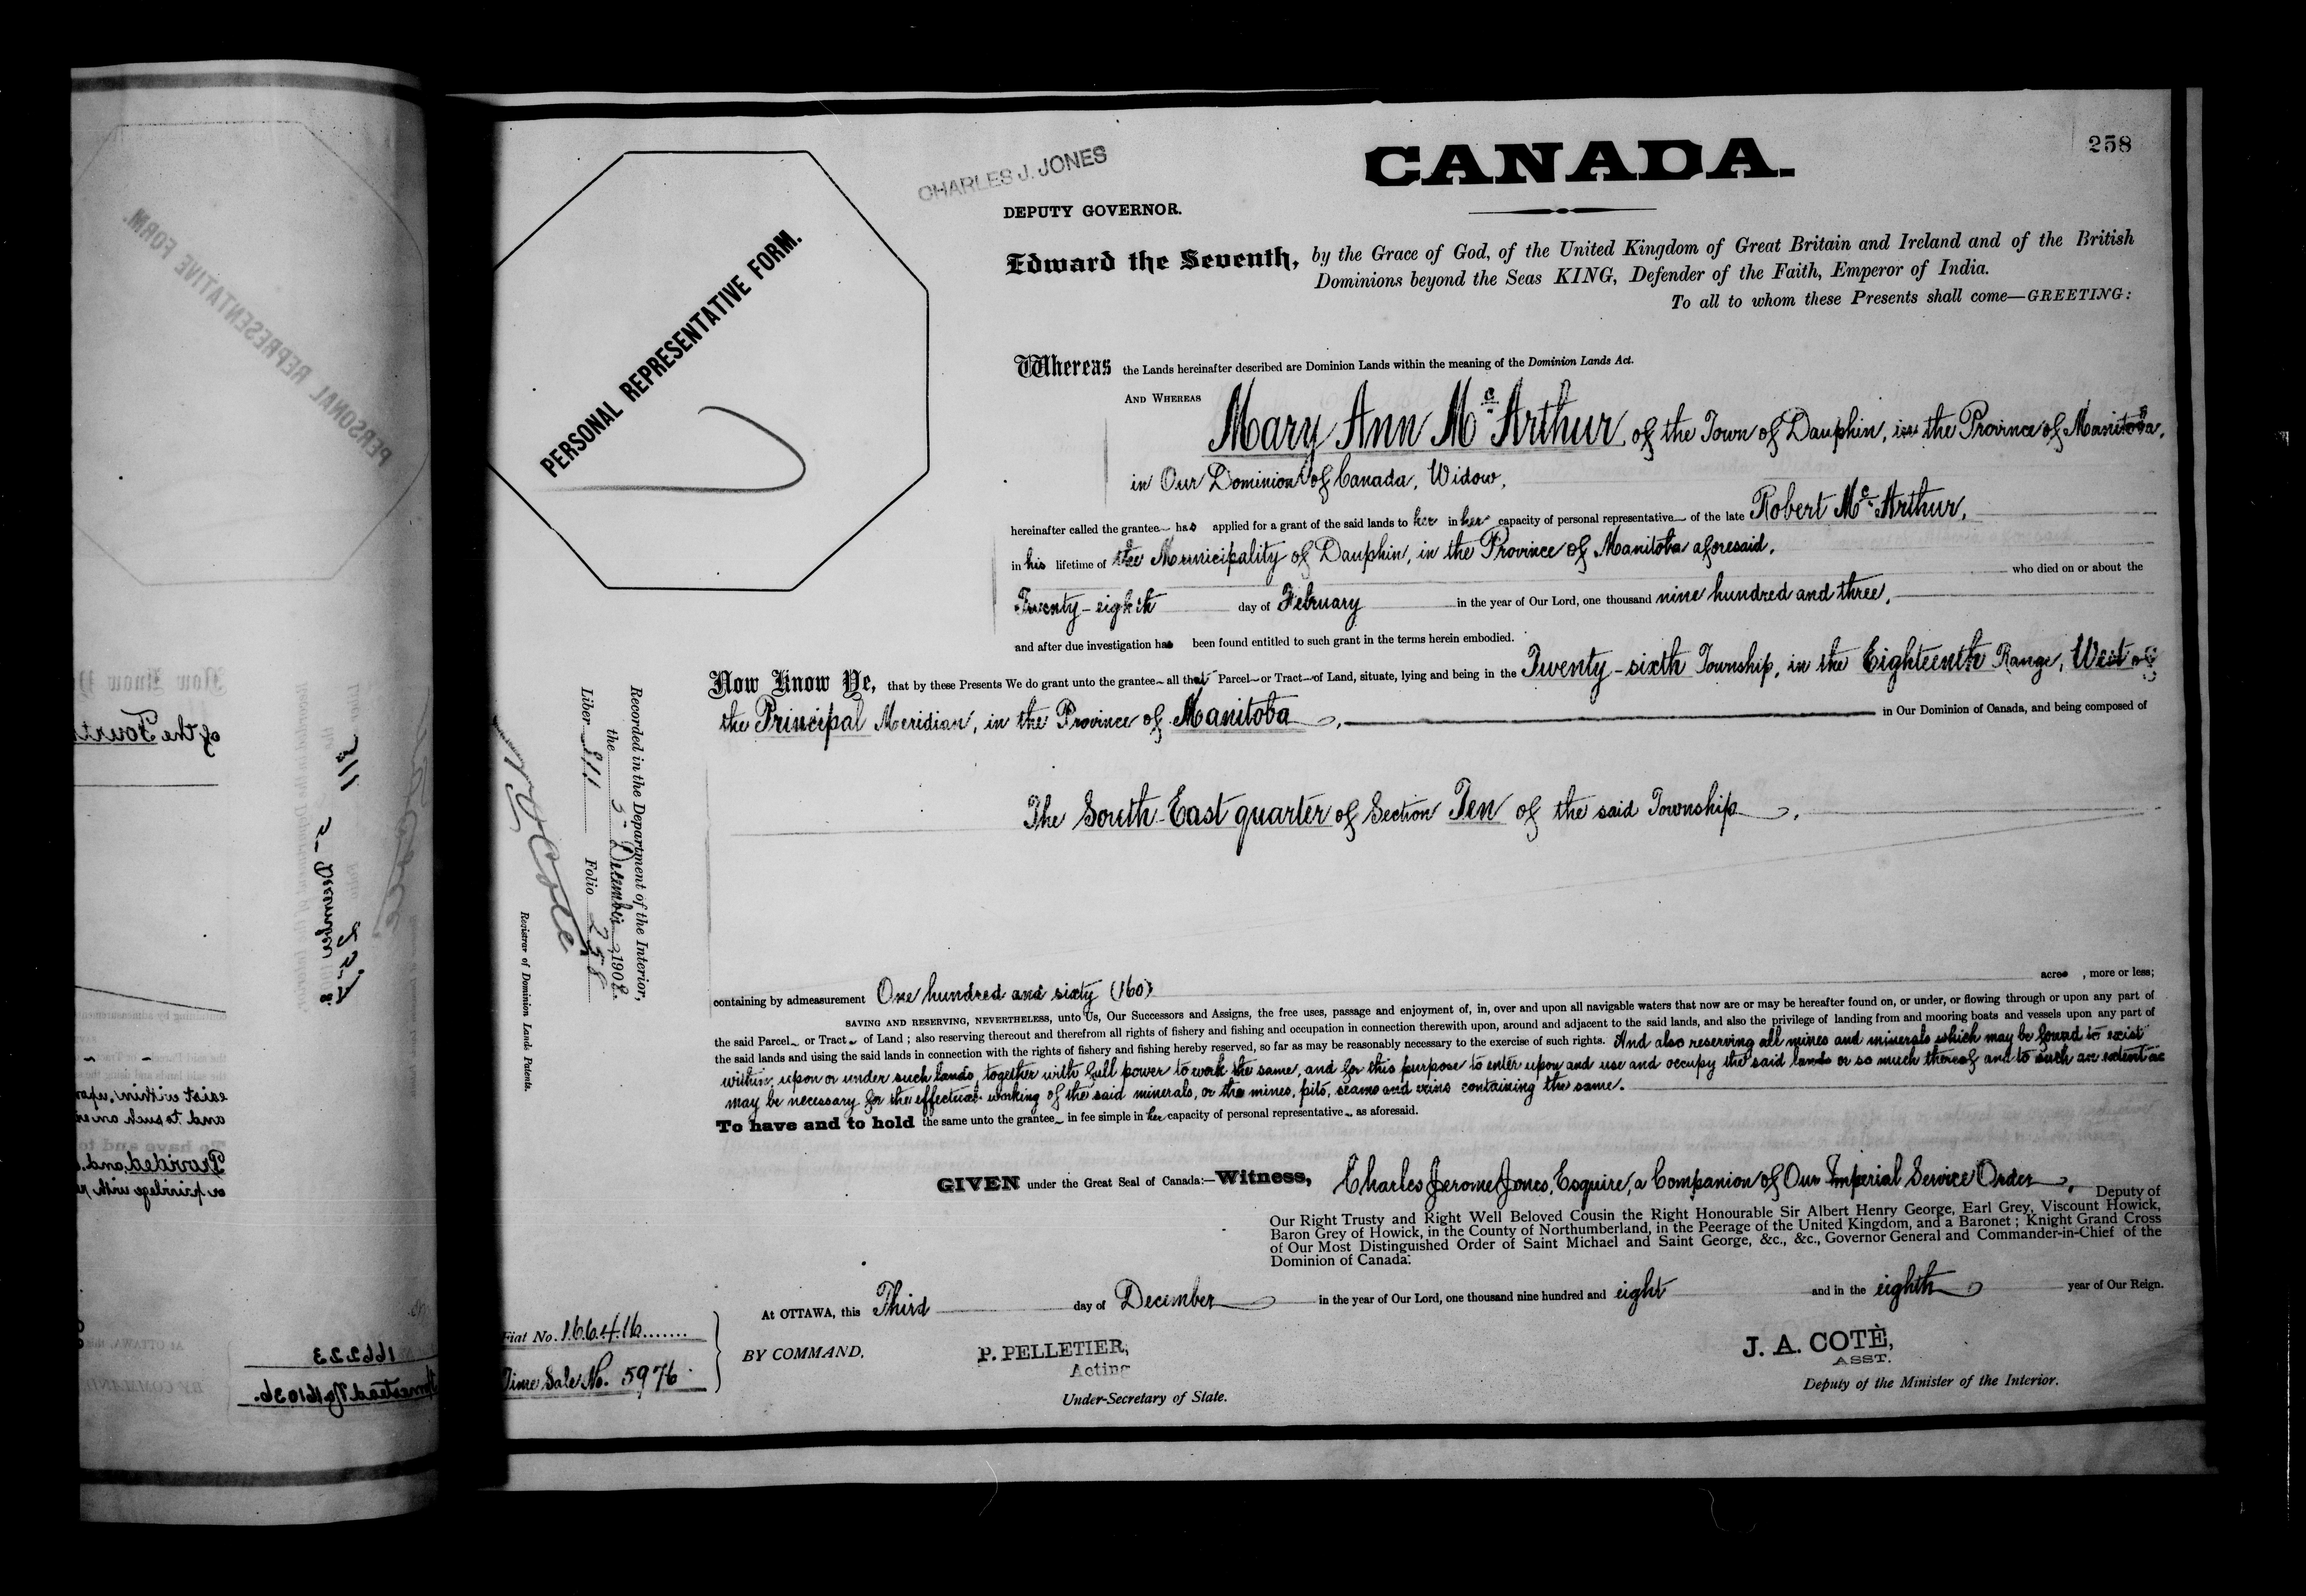 258
CANADA.
CHARLES J. JONES
DEPUTY GOVERNOR.
PERSONAL REPRESENTATIVE FORM.
Edward the Seventh, by the Grace of God, of the United Kingdom of Great Britain and Ireland and of the British
Dominions beyond the Seas KING, Defender of the Faith, Emperor of India.
To all to whom these Presents shall come—GREETING:
Whereas the Lands hereinafter described are Dominion Lands within the meaning of the Dominion Lands Act.
AND WHEREAS Mary Ann Mc Arthur of the Town of Dauphin, in the Province of Manitoba,
in Our Dominion of Canada, Widow,
hereinafter called the grantee has applied for a grant of the said lands to her in her capacity of personal representative of the late Robert Mc Arthur,
in his lifetime of the Municipality of Dauphin, in the Province of Manitoba aforesaid,
who died on or about the
Twenty-eighth day of February in the year of Our Lord, one thousand nine hundred and three,
and after due investigation has been found entitled to such grant in the terms herein embodied.
Now Know Ye, that by these Presents We do grant unto the grantee all that Parcel or Tract of Land, situate, lying and being in the Twenty-sixth Township, in the Eighteenth Range, West of
the Principal Meridian, in the Province of Manitoba, in Our Dominion of Canada, and being composed of
The South-East quarter of Section Ten of the said Township.
Recorded in the Department of the Interior,
the 5 December 1908.
Liber 211 Folio 258
Registrar of Dominion Lands Patents.
containing by admeasurement One hundred and sixty (160) acres, more or less;
SAVING AND RESERVING, NEVERTHELESS, unto Us, Our Successors and Assigns, the free uses, passage and enjoyment of, in, over and upon all navigable waters that now are or may be hereafter found on, or under, or flowing through or upon any part of
the said Parcel or Tract of Land; also reserving thereout and therefrom all rights of fishery and fishing and occupation in connection therewith upon, around and adjacent to the said lands, and also the privilege of landing from and mooring boats and vessels upon any part of
the said lands and using the said lands in connection with the rights of fishery and fishing hereby reserved, so far as may be reasonably necessary to the exercise of such rights. And also reserving all mines and minerals which may be found to exist
within, upon or under such lands, together with full power to work the same, and for this purpose to enter upon and use and occupy the said lands or so much thereof and to such an extent as
may be necessary for the effectual working of the said minerals, or the mines, pits, seams and veins containing the same.
To have and to hold the same unto the grantee in fee simple in her capacity of personal representative as aforesaid.
GIVEN under the Great Seal of Canada:—Witness, Charles Jerome Jones, Esquire, a Companion of Our Imperial Service Order, Deputy of
Our Right Trusty and Right Well Beloved Cousin the Right Honourable Sir Albert Henry George, Earl Grey, Viscount Howick,
Baron Grey of Howick, in the County of Northumberland, in the Peerage of the United Kingdom, and a Baronet; Knight Grand Cross
of Our Most Distinguished Order of Saint Michael and Saint George, &c., &c., Governor General and Commander-in-Chief of the
Dominion of Canada:
At OTTAWA, this Third day of December in the year of Our Lord, one thousand nine hundred and eight and in the eighth year of Our Reign.
Fiat No. 166416
Time Sale No. 5976
BY COMMAND,
P. PELLETIER,
Acting
Under-Secretary of State.
J. A. COTÈ,
ASST.
Deputy of the Minister of the Interior.